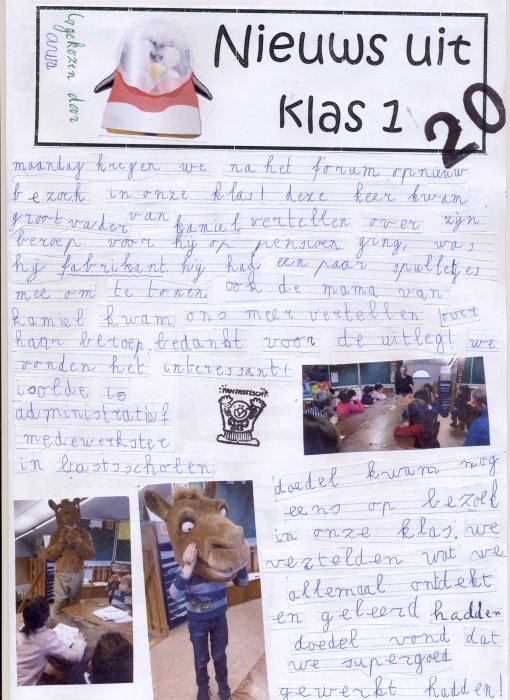 Nieuws uit
klas 1
20
Gekozen door
maandag kregen we na het forum opnieuw
bezoek in onze klas! deze keer kwam
grootvader van kamiel vertellen over zijn
beroep. voor hij op pensioen ging, was
hij fabrikant. hij had een paar spulletjes
mee om te tonen. ook de mama van
kamiel kwam ons meer vertellen over
haar beroep. bedankt voor de uitleg! we
vonden het interessant!
isolde is
administratief
medewerkster
in basisscholen.
FANTASTISCH
doedel kwam nog
eens op bezoek
in onze klas. we
vertelden wat we
allemaal ontdekt
en geleerd hadden
doedel vond dat
we supergoed
gewerkt hadden!